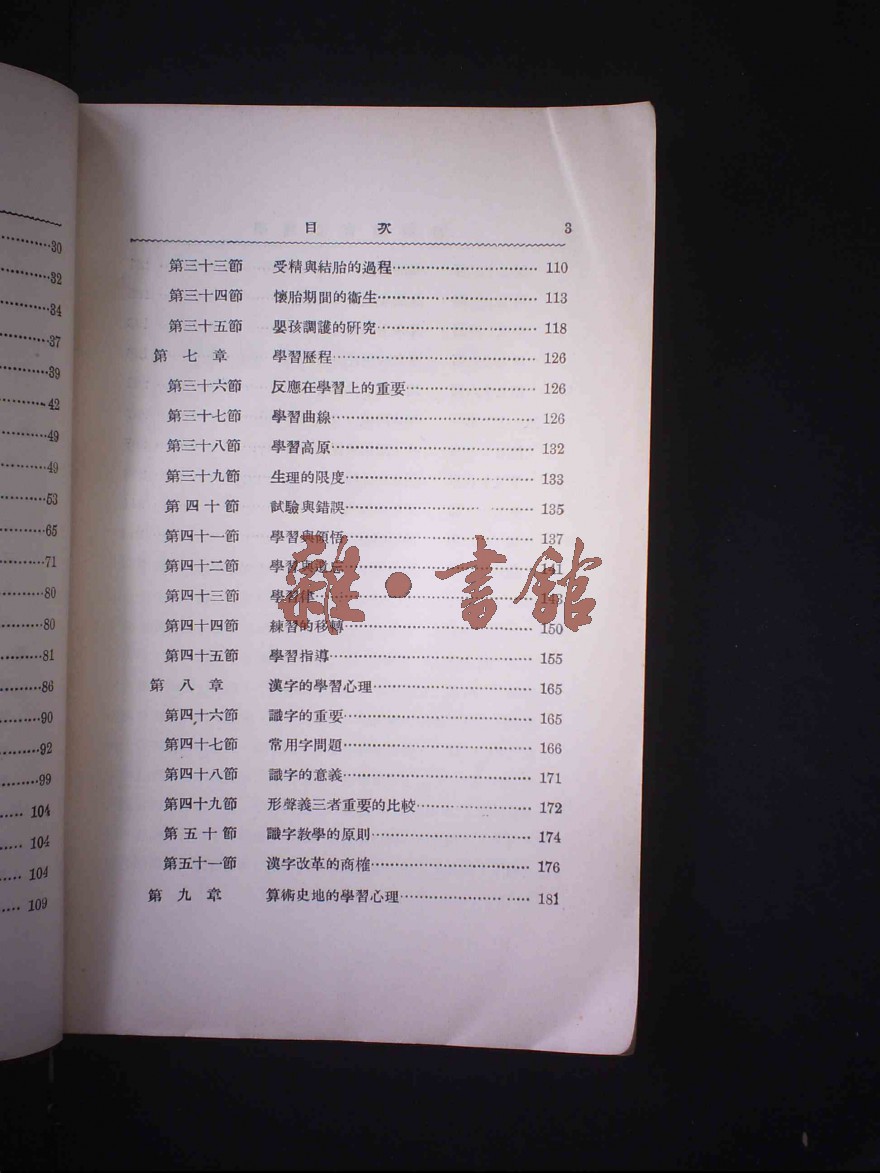 30
32
34
37
39
42
49
49
53
65
71
80
80
81
86
90
92
99
104
104
104
109
目 次 3
第三十三節 受精與結胎的過程 110
第三十四節 懷胎期間的衞生 113
第三十五節 嬰孩調護的研究 118
第七章 學習歷程 126
第三十六節 反應在學習上的重要 126
第三十七節 學習曲線 126
第三十八節 學習高原 132
第三十九節 生理的限度 133
第四十節 試驗與錯誤 135
第四十一節 學習與領悟 137
第四十二節 學習與遺忘 141
第四十三節 學習律 143
第四十四節 練習的移轉 150
第四十五節 學習指導 155
第八章 漢字的學習心理 165
第四十六節 識字的重要 165
第四十七節 常用字問題 166
第四十八節 識字的意義 171
第四十九節 形聲義三者重要的比較 172
第五十節 識字教學的原則 174
第五十一節 漢字改革的商榷 176
第九章 算術史地的學習心理 181
雜·書館